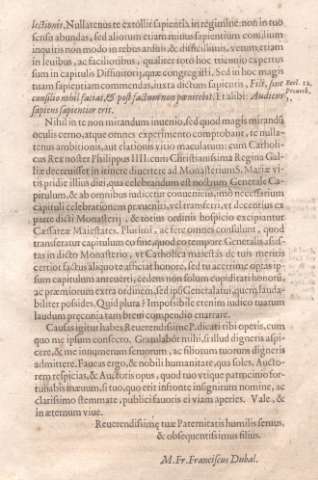 lectionis. Nullatenus te extollit sapientia in regimine: non in tuo
sensu abundas, sed aliorum etiam minus sapientium consilium
inquiris non modo in rebus arduis & difficilimis, verum etiam
in leuibus, ac facilioribus, qualiter toto hoc triennio expertus
sum in capitulis Diffinitorij, quæ congregasti. Sed in hoc magis
tuam sapientiam commendas, iuxta dictum sapientis, Fili, sine
consilio nihil facias, & post factum non pœnitebit. Et alibi: Audiens
sapiens sapientior erit.
Eccl. 32.
Prouerb.
1.
Nihil in te non mirandum inuenio, sed quod magis mirandũ
oculis cerno, atque omnes experimento comprobant, te nulla-
tenus ambitionis, aut elationis vitio maculatum: cum Catholi-
cus Rex noster Philippus IIII. cum Christianissima Regina Gal-
liæ decreuisset in itinere diuertere ad Monasterium S. Mariæ vi-
tis pridie illius diei, qua celebrandum est nostrum Generale Ca-
pitulum, & ab omnibus iudicetur conueniens, imò necessarium
capituli celebrationem præueniri, vel transferri, vt decentius ex
parte dicti Monasterij, & totius ordinis hospicio excipiantur
Cæsareæ Maiestates. Plurimi, ac ferè omnes consulunt, quod
transferatur capitulum eo fine, quod eo tempore Generalis assis-
tas in dicto Monasterio, vt Catholica maiestas de tuis meritis
certior factus aliquo te afficiat honore, sed tu acerrimè optas ip-
sum capitulum anteuerti, eo dens non solum cupiditati honoris,
ac præmiorum extra ordinem, sed ipsi Generalatui, quem lauda-
biliter possides. Quid plura? Impossibile etenim iudico tuarum
laudum præconia tam breui compendio enarrare.
Causas igitur habes Reuerendissime P. dicati tibi operis, cum
quo me ipsum consecro. Gratulabor mihi, si illud digneris aspi-
cere, & me in numerum seruorum, ac filiorum tuorum digneris
admittere. Fauces ergo, & nobili humanitate, qua soles. Aucto-
rem respicias, & Auctoris opus, quod tuo vtique patrocinio for-
tunabis in æuum, si tuo, quo erit in fronte insignitum nomine, ac
clarissimo stemmate, publici fauoris ei viam aperies. Vale, &
in æternum viue.
Reuerendissimę tuæ Paternitatis humilis seruus,
& obsequentissimus filius.
M. Fr. Franciscus Dubal.